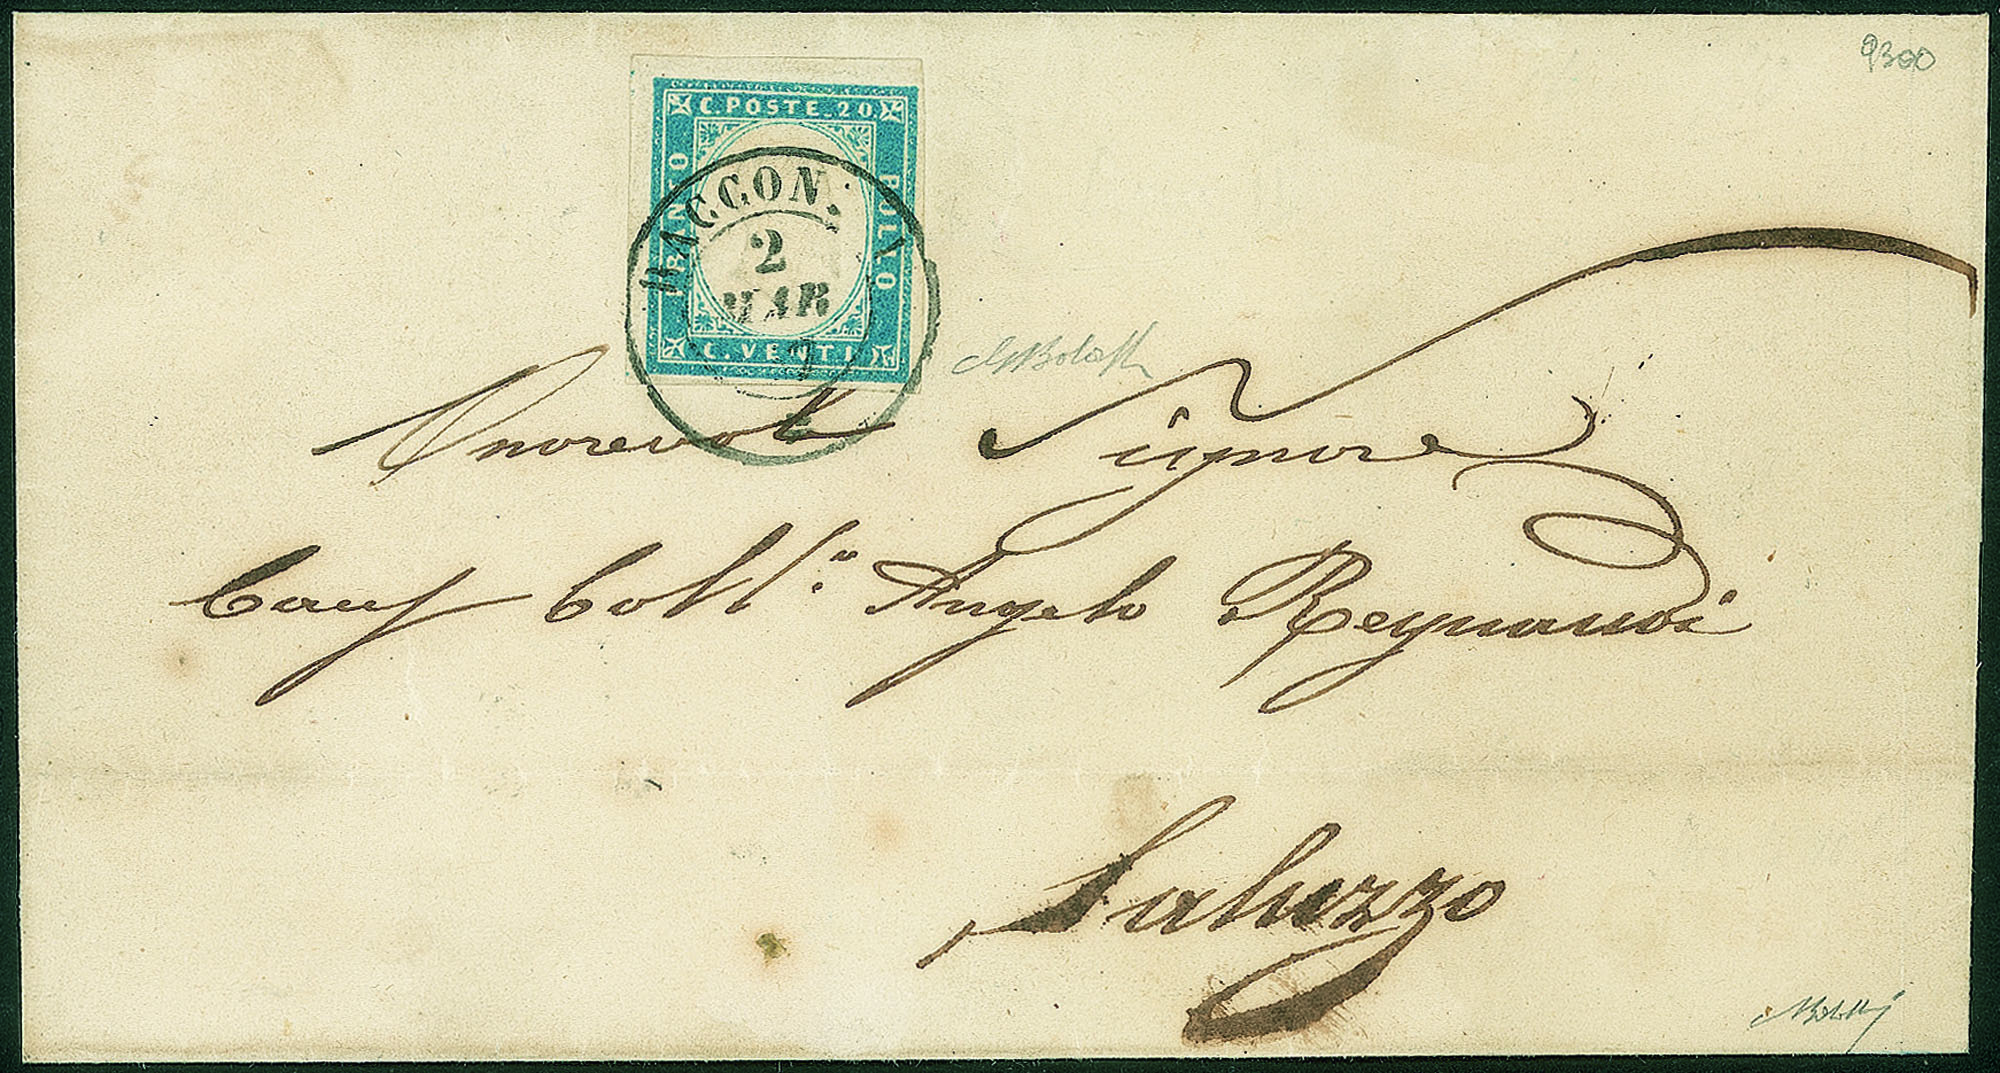 9300
C. POSTE. 20
FRANCO
BOLLO
C. VENTI
RACCON.
2
MAR
Onorevole Signore
Caus Coll. Angelo Reynaudi
Saluzzo